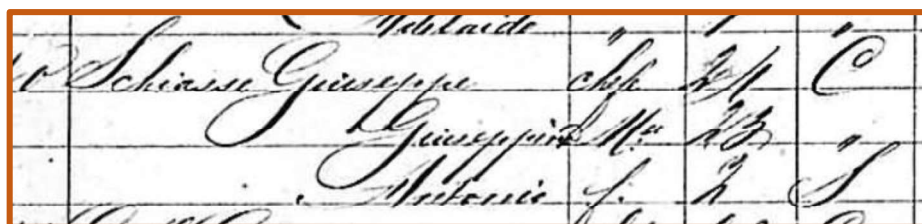 Adelaide " "
Schiasse Giuseppe chef 24 C
Giuseppina Ma 23 "
Antonio f. 2 S